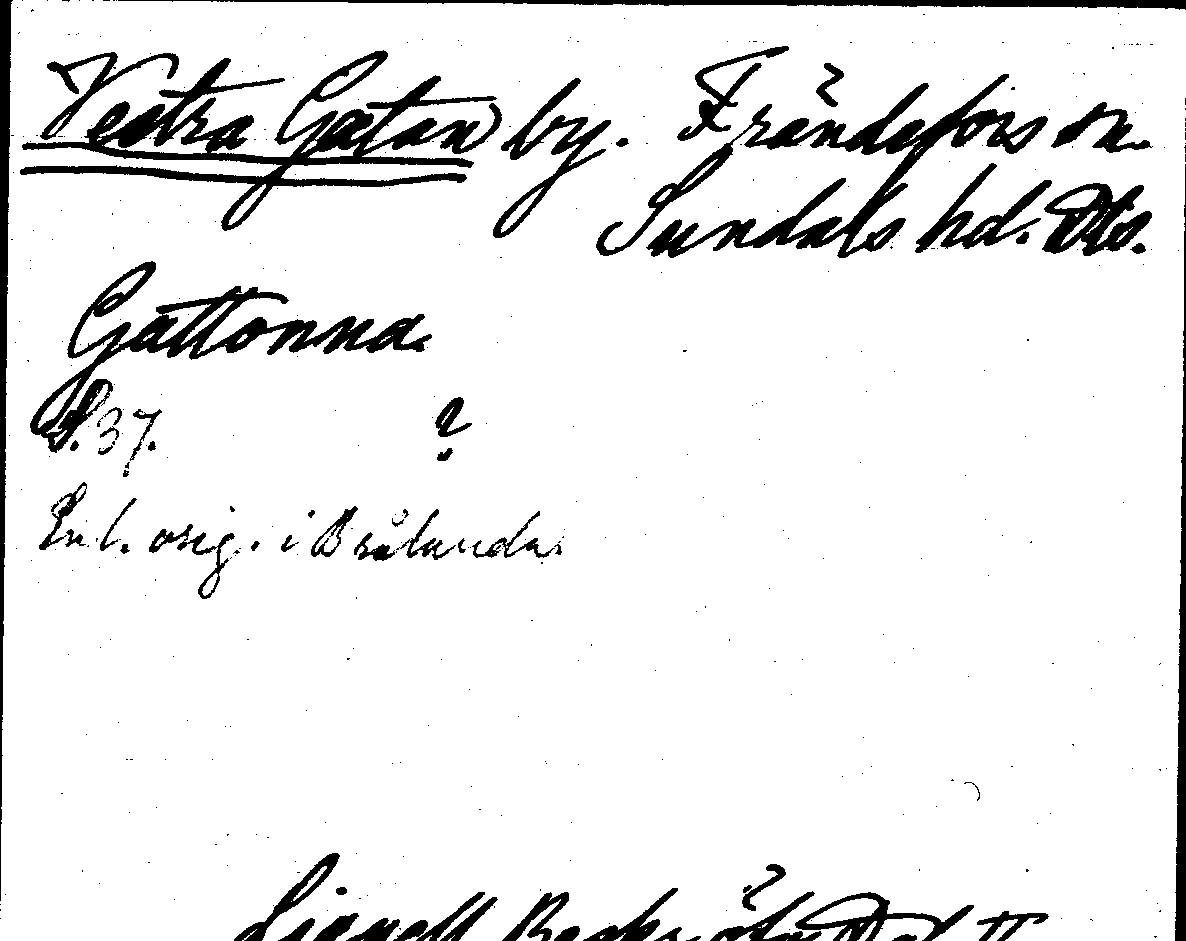 Vestra Gatan) by. Frändefors sn.
Sundals hd. Dls.
Gattonna.
S. 37. ?
Enl. orig. i Brålanda.
Lignell Beskr. öfver Dal II